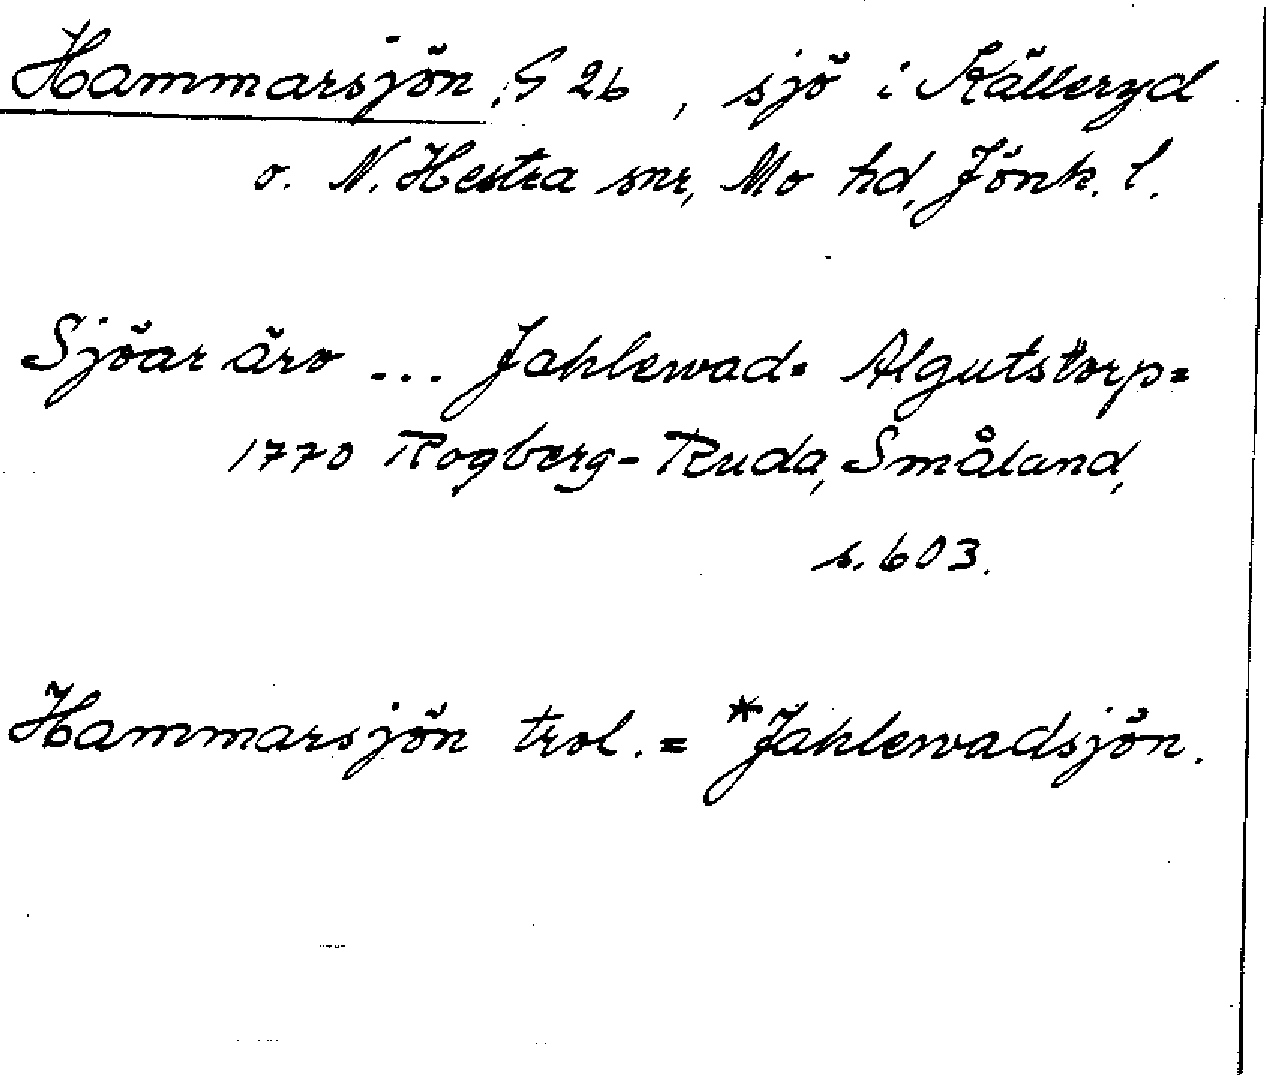 Hammarsjön, G 26, sjö i Källeryd
o. N. Hestra snr, Mo hd, Jönk. l.
Sjöar äro ... Jahlewad= Algutstorp=
1770 Rogberg-Ruda, Småland,
s. 603.
Hammarsjön trol. = *Jahlewadsjön.